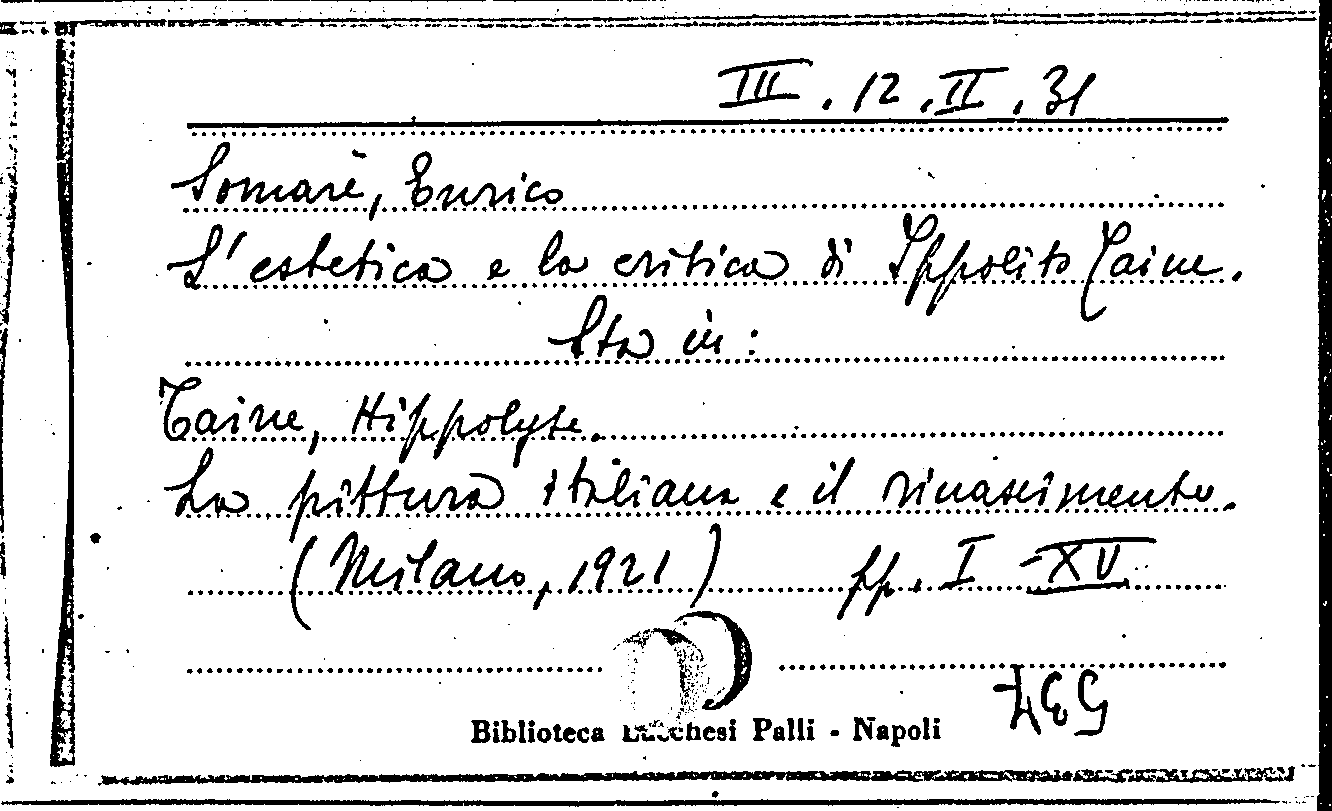 III. 12. II. 31
Somarè, Enrico
L'estetica e la critica di Ippolito Taine.
Sta in:
Taine, Hippolyte.
La pittura italiana e il rinascimento.
(Milano, 1921) pp. I-XV
Biblioteca Lucchesi Palli - Napoli